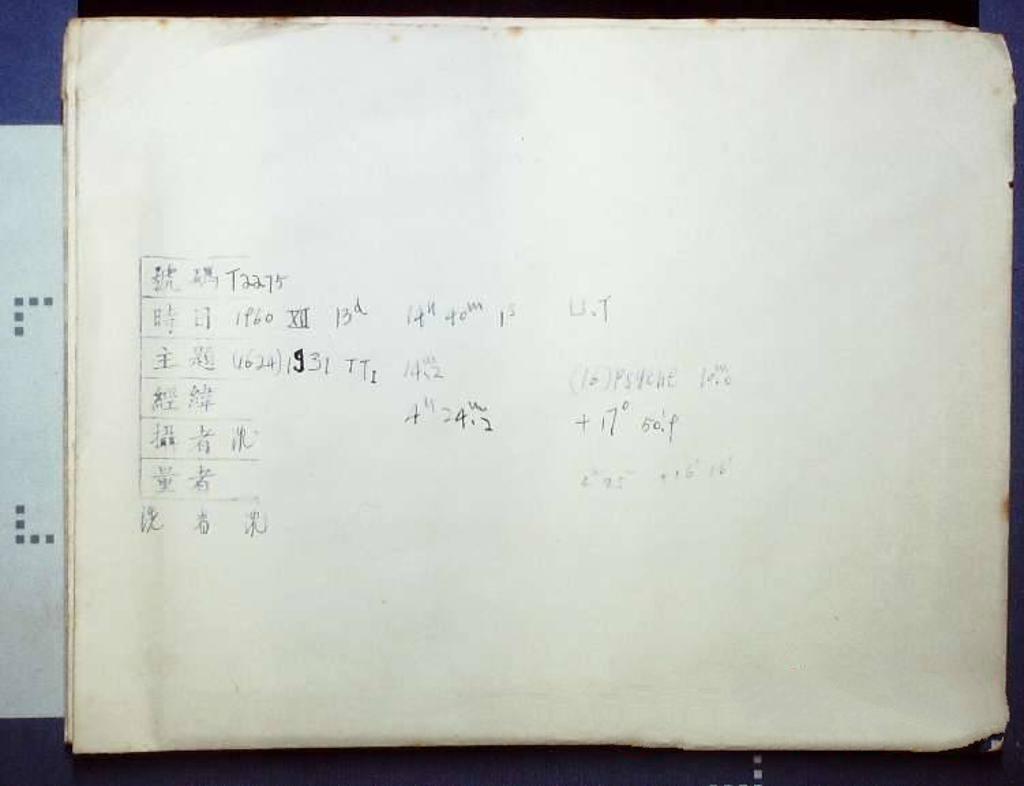 號碼 T2275
時日 1960 XII 13d 14h 40m 1s U.T
主題 (1624) 1931 TT1 14m.2 (16) Psyche 10m.0
經緯 4h 24m.2 +17° 50'.9
攝者 沈
量者 +16° 16'
洗者 沈